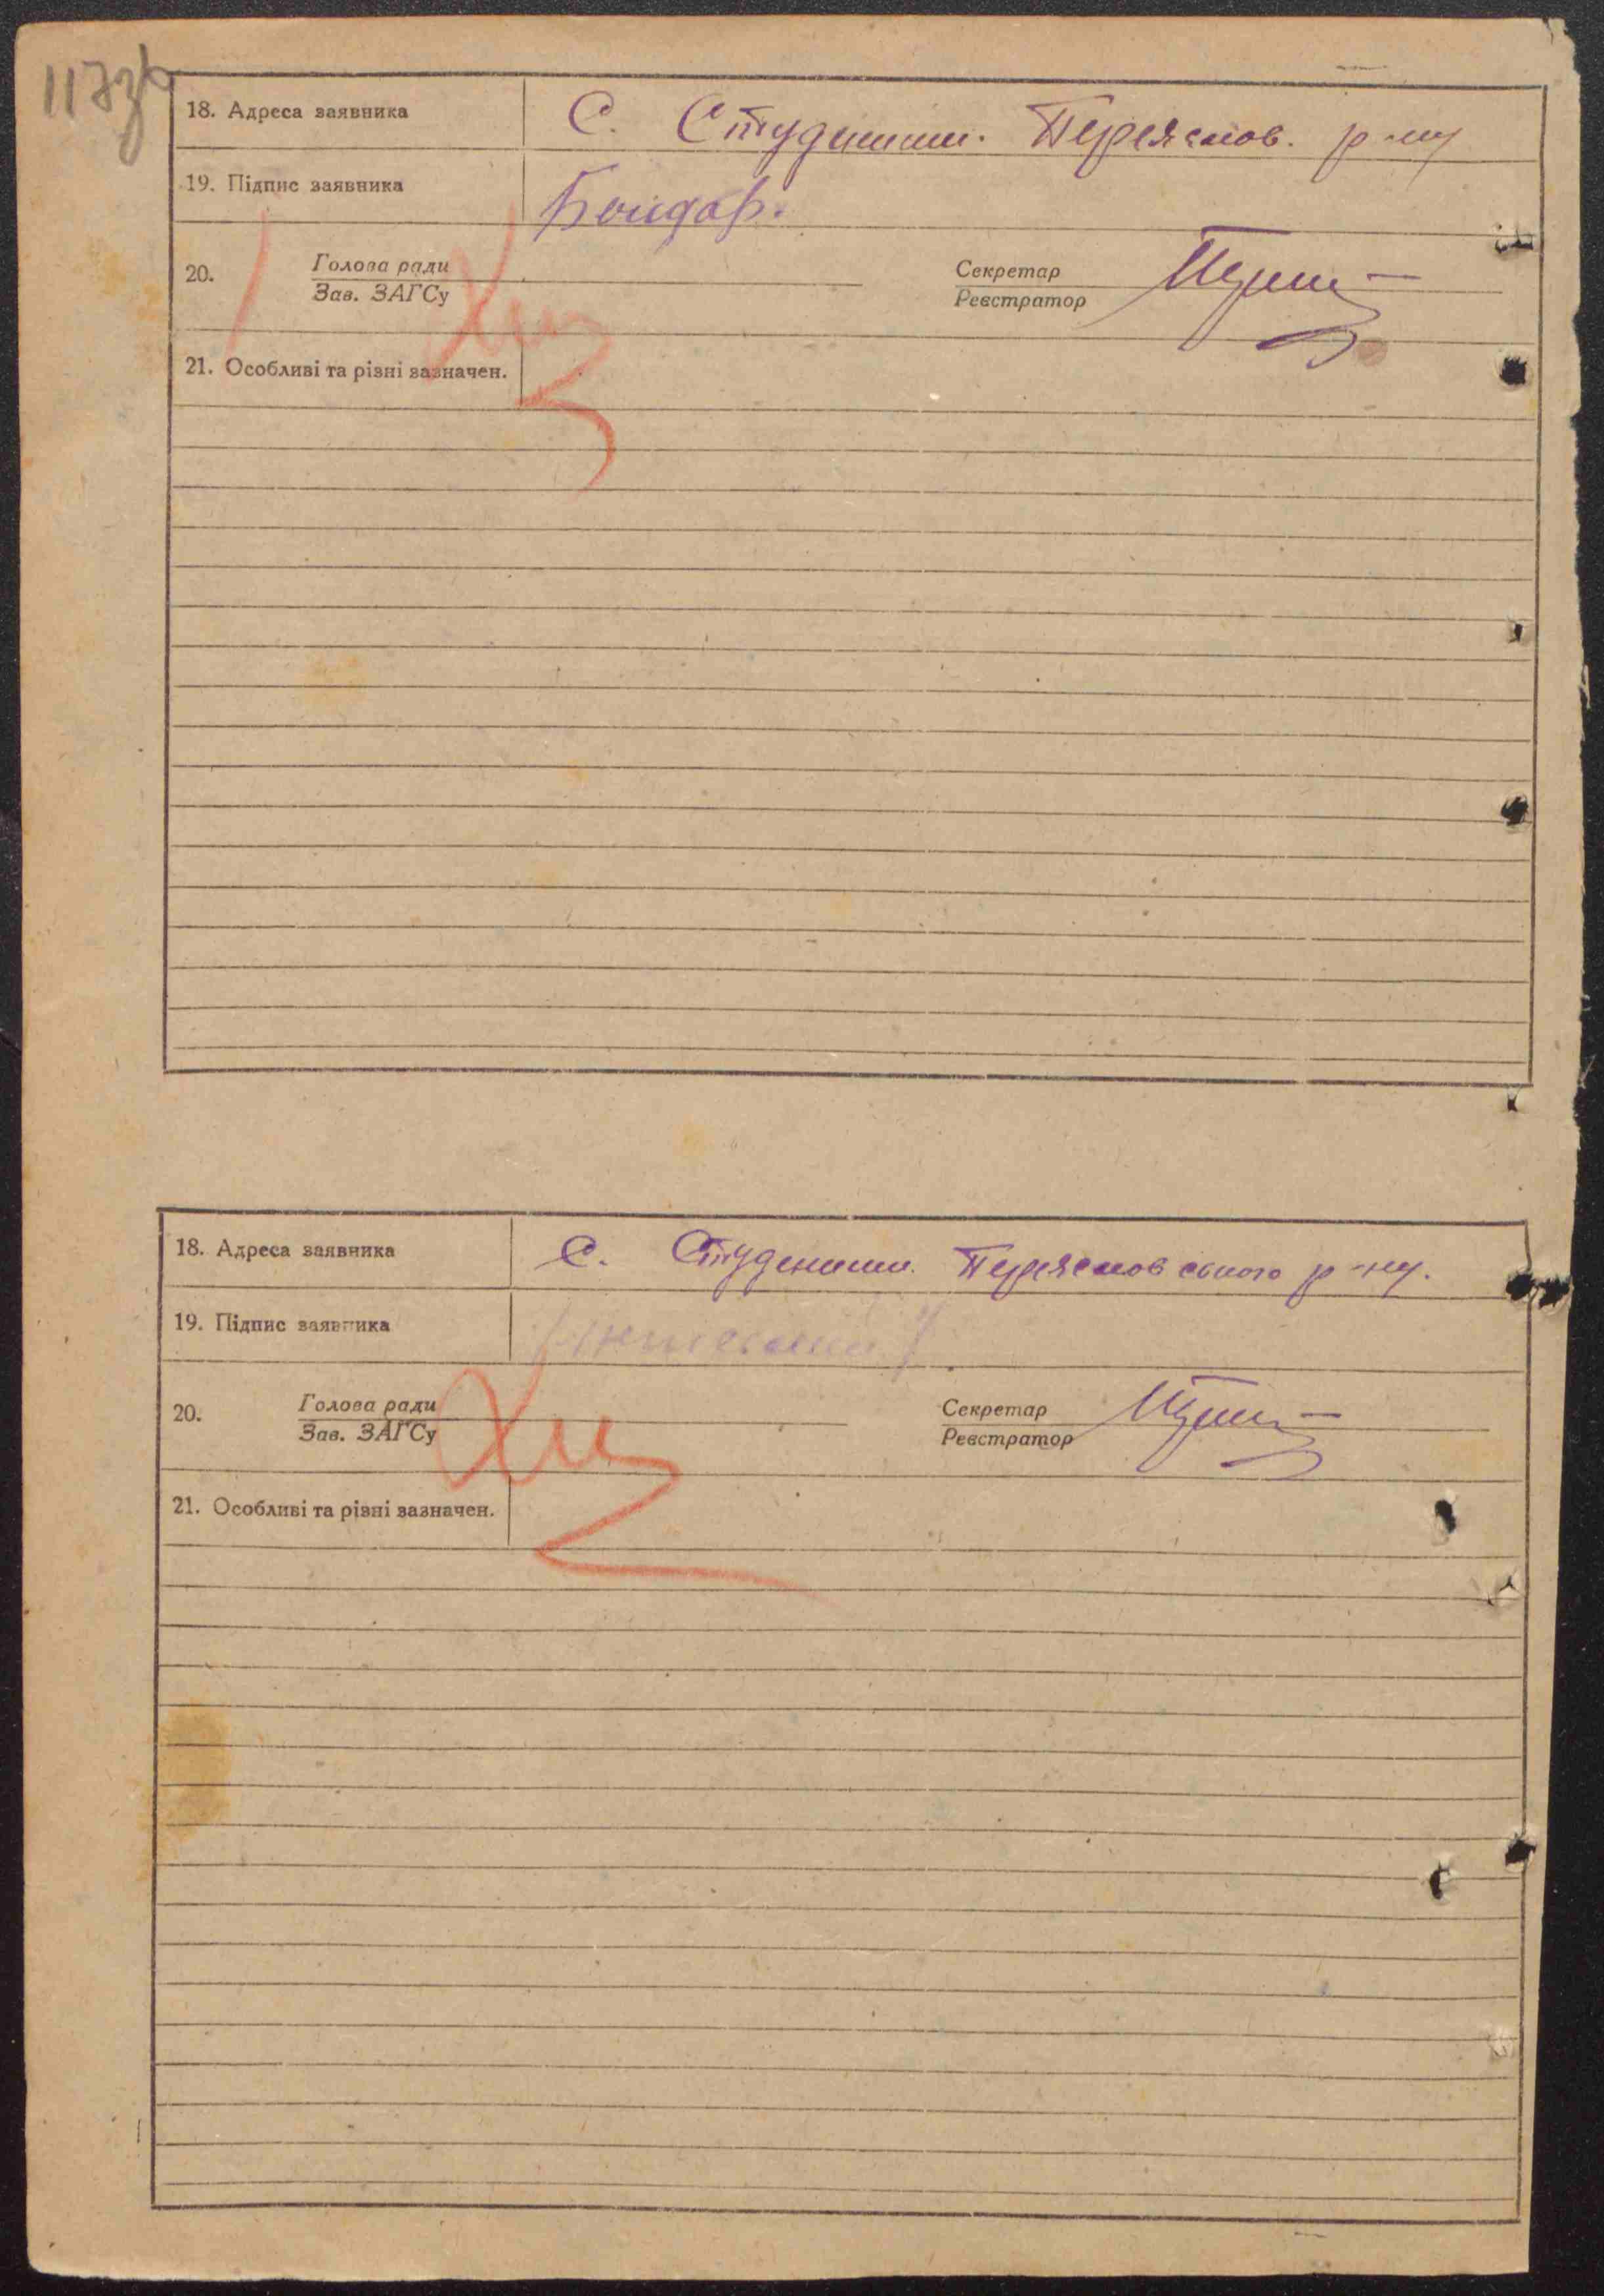 18. Адреса заявника С. Студеники. Переяслов. р-ну
19. Підпис заявника Бондар.
20. Голова ради Секретар
Зав. ЗАГСу Реєстратор
21. Особливі та різні зазначен.
18. Адреса заявника С. Студеники Переясловського р-ну.
19. Підпис заявника
20. Голова ради Секретар
Зав. ЗАГСу Реєстратор
21. Особливі та різні зазначен.